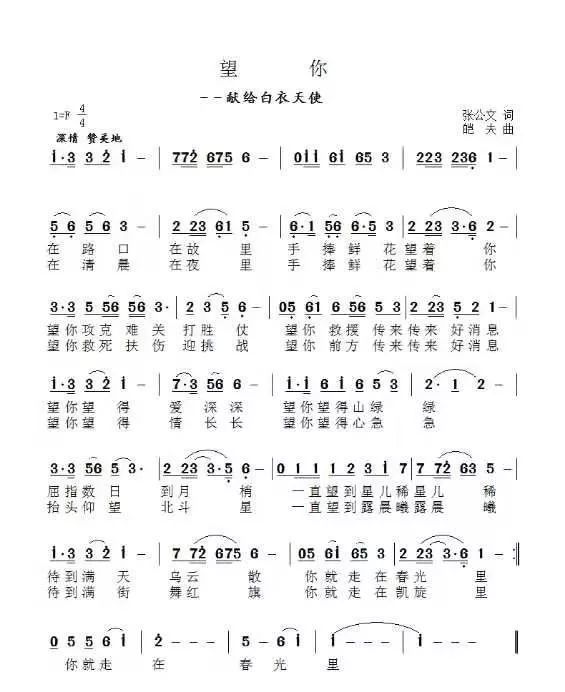 望 你
--献给白衣天使
1=F 4/4
张公文 词
皑 夫 曲
深情 赞美地
i·3 3 2 i - | 772 675 6 - | 0ii 6i 5635 | 223 236 1 - |
5 6 5 65 3 - | 2 23 61 5 - | 6·1 56 6·5 3 | 2 23 3·6 2 - |
在 路 口 在 故 里 手 捧 鲜 花 望 着 你
在 清 晨 在 夜 里 手 捧 鲜 花 望 着 你
3·3 5 56 56 3 | 2·3 5 6 - | 05 61 6535 | 2 23 5 2 1 - |
望 你 攻 克 难 关 打 胜 仗 望 你 救 援 传 来 传 来 好 消 息
望 你 救 死 扶 伤 迎 挑 战 望 你 前 方 传 来 传 来 好 消 息
i·3 3 2 i - | 7·3 56 6 - | i·i 6i 6 5 3 | 2· 1 2 - |
望 你 望 得 爱 深 深 望 你 望 得 山 绿 绿
望 你 望 得 情 长 长 望 你 望 得 心 急 急
3·3 56 5 3 - | 2 23 3·5 6 - | 0 1 1 1 1 2 3 i 7 | 7 72 63 5 - |
屈 指 数 日 到 月 梢 一 直 望 到 星 儿 稀 星 儿 稀
抬 头 仰 望 北 斗 星 一 直 望 到 露 晨 曦 露 晨 曦
i·3 3 2 i - | 7 72 675 6 - | 05 6i 5635 | 2 23 3·6 1 - :|
待 到 满 天 乌 云 散 你 就 走 在 春 光 里
待 到 满 街 舞 红 旗 你 就 走 在 凯 旋 里
0 5 5 6 i | i 2·3 2 - | 2 6 5 6 | i - - - | i - - - ‖
你 就 走 在 春 光 里